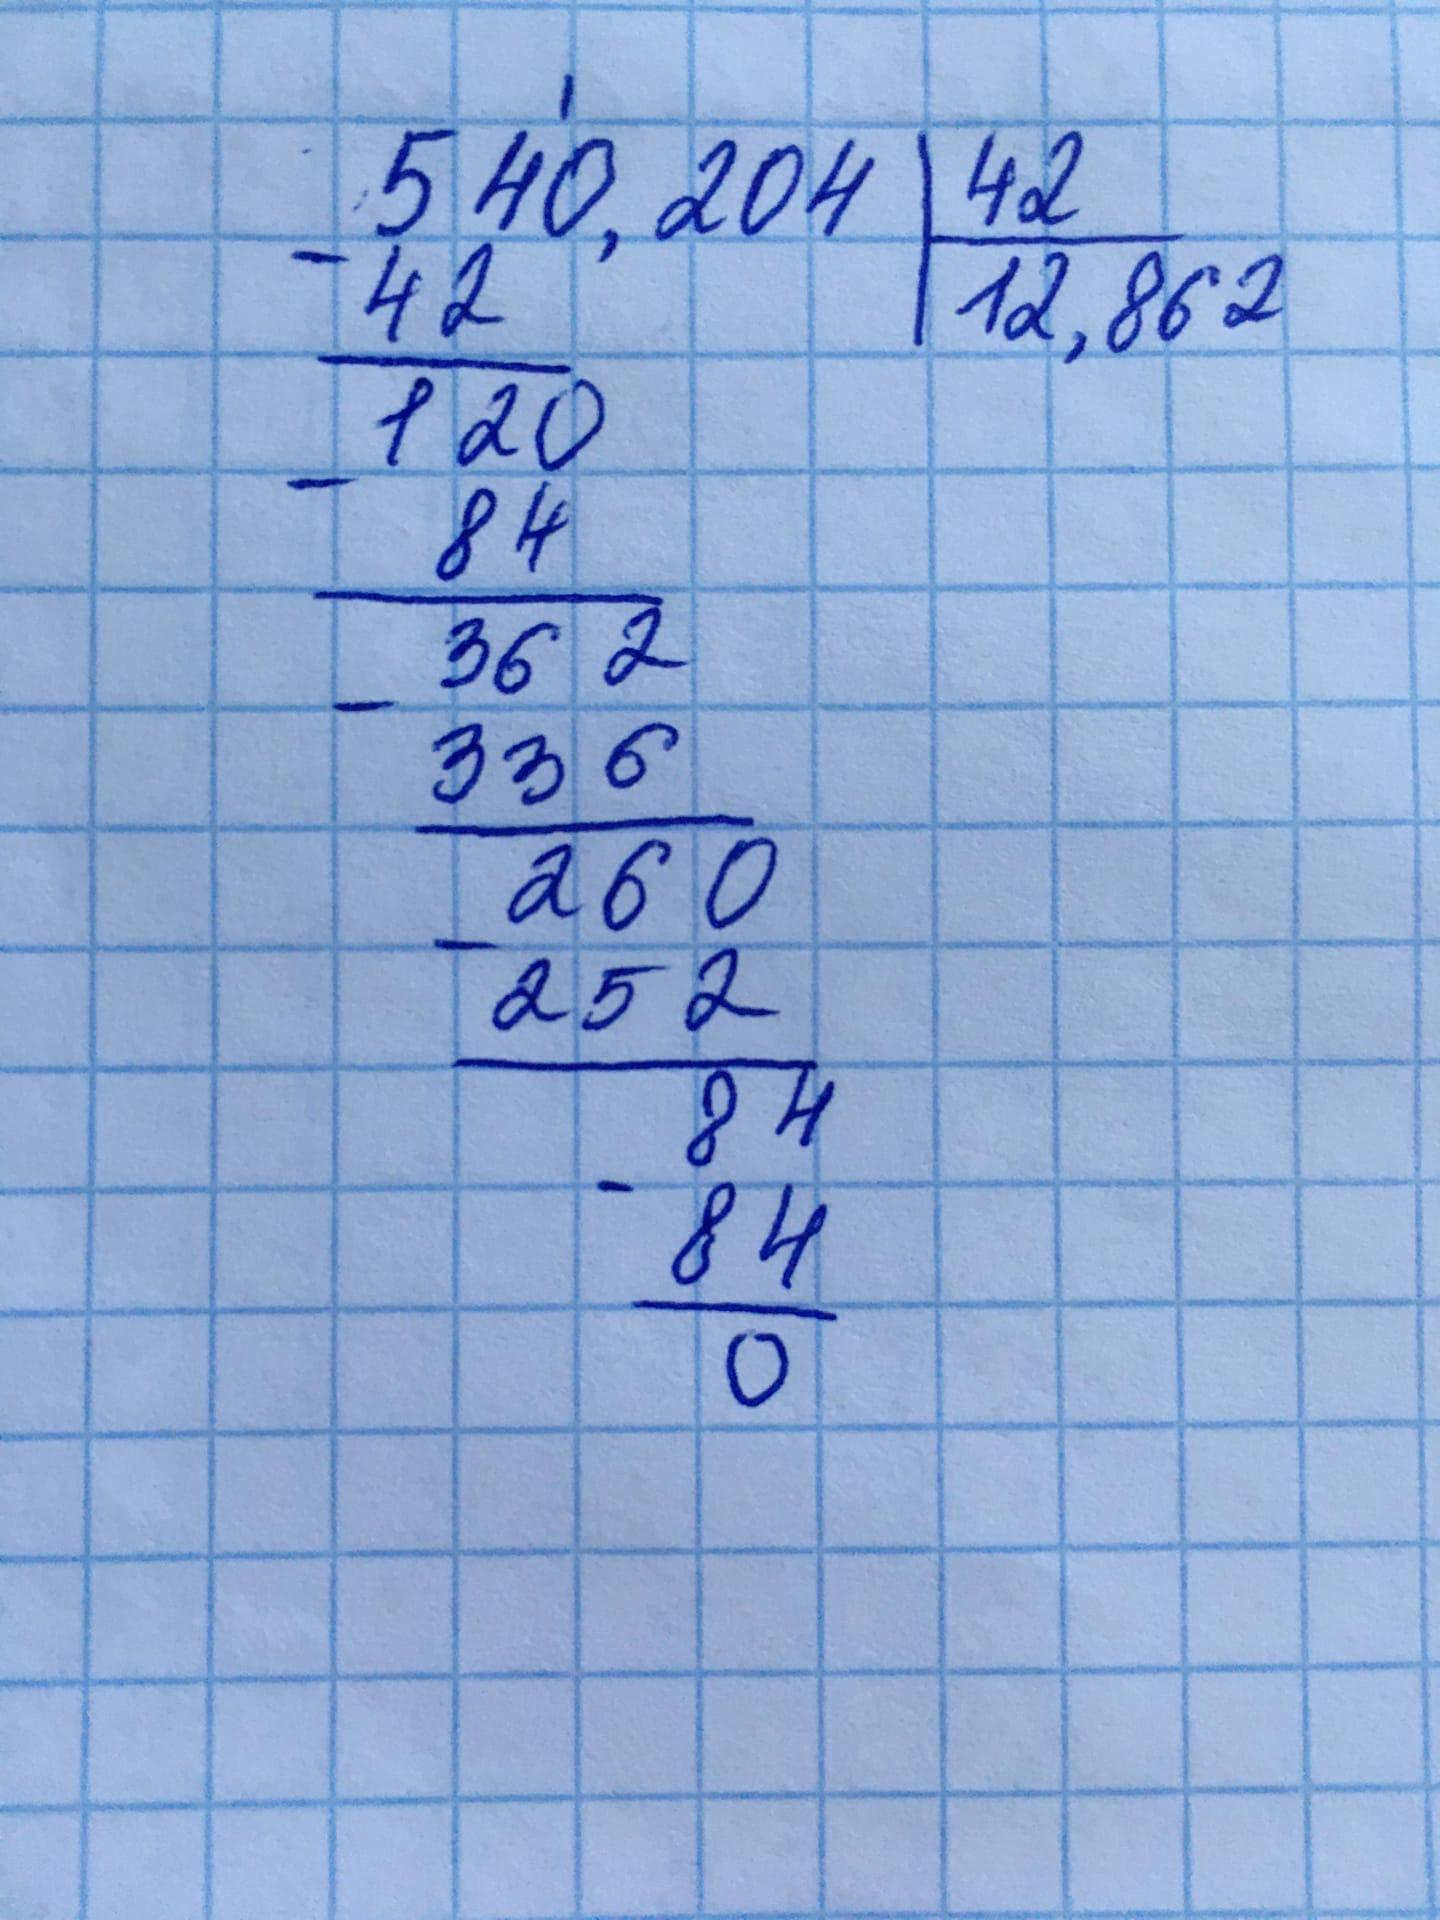 540,204 | 42
- 42 | 12,862
120
- 84
362
- 336
260
- 252
84
- 84
0